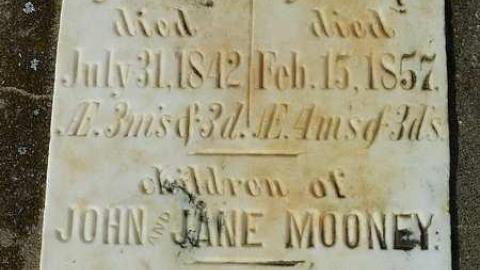 died died
July 31, 1842 Feb. 15, 1857.
Æ. 3m's & 3d. Æ. 4m's & 3d's
children of
JOHN AND JANE MOONEY.